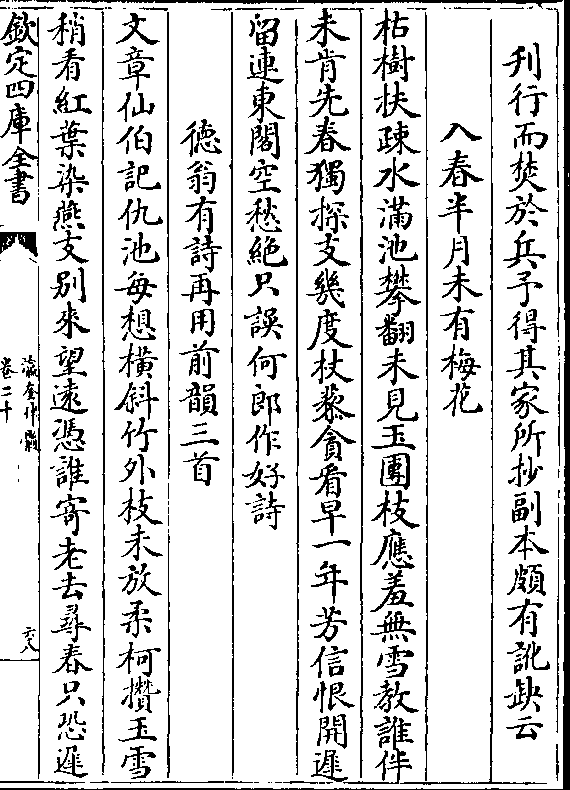 刋行而焚於兵予得其家所抄副本頗有訛缺云
入春半月未有梅花
枯樹扶疎水滿池攀翻未見玉團枝應羞無雪教誰伴
未肯先春獨探支幾度杖藜貪看早一年芳信恨開遲
留連東閣空愁絶只誤何郎作好詩
德翁有詩再用前韻三首
文章仙伯記仇池每想橫斜竹外枝未放柔柯攢玉雪
稍看紅葉染燕支別來望遠憑誰寄老去尋春只恐遲
欽定四庫全書
瀛奎律髓
卷二十
六八